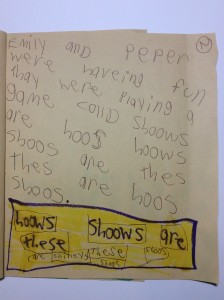 2
Emily and Peper
were haveing fun
thay were Playing a
game colld shoows
are hoos hoows
shoos are thes
thes are hoos
shoos.
hoows shoows are
these
are these shoos